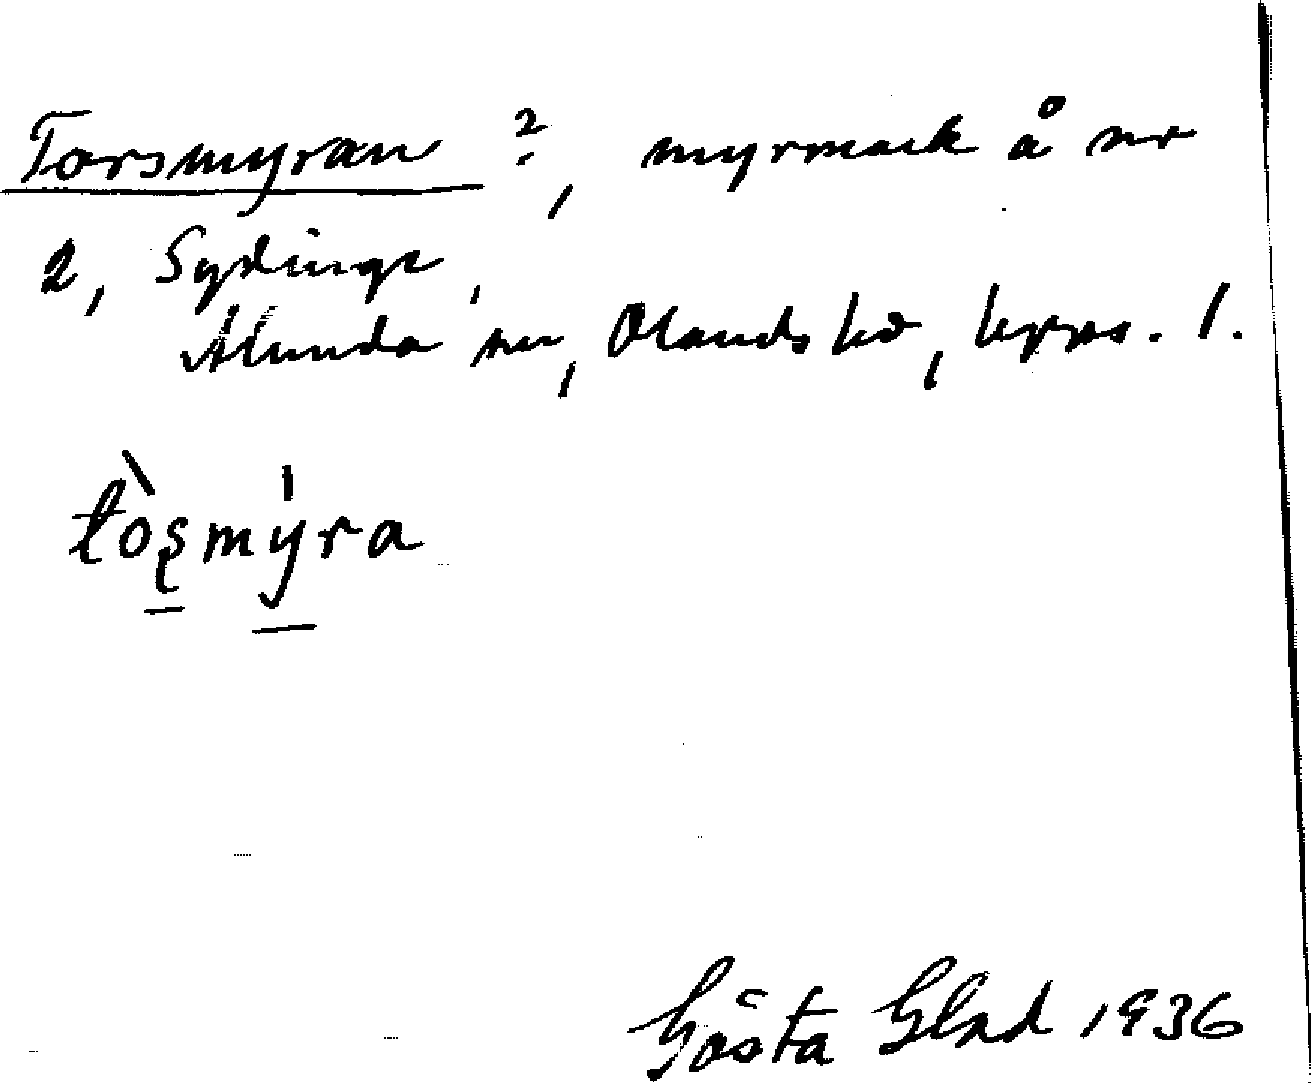 Torsmyran ?, myrmark å nr
2, Sydinge,
Alunda sn, Olands hd, Upps. l.
tòs̠mý̠ra
Gösta Glad 1936